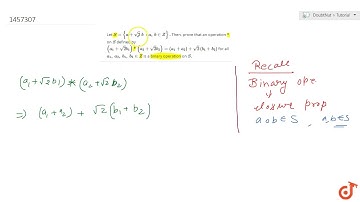 1457307
doubtnut > Tutorial
Let S = {a + √2 b : a, b ∈ Z}. Then prove that an operation *
on S defined by
(a₁ + √2b₁) * (a₂ + √2b₂) = (a₁ + a₂) + √2 (b₁ + b₂) for all
a₁, a₂, b₁, b₂ ∈ Z is a binary operation on S.
(a₁+√2 b₁) * (a₂+√2 b₂)
⇒ (a₁+a₂) + √2 (b₁+b₂)
Recall
Binary ope
↓
closure prop
a.o b ∈ S , a,b ∈ S